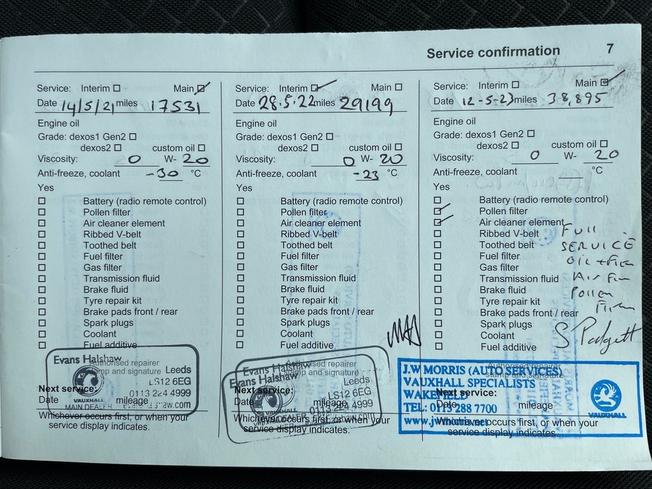 Service confirmation 7
Service: Interim Main
Date 14/5/21 miles 17531
Engine oil
Grade: dexos1 Gen2
dexos2 custom oil
Viscosity: 0 W- 20
Anti-freeze, coolant -30 °C
Yes
Battery (radio remote control)
Pollen filter
Air cleaner element
Ribbed V-belt
Toothed belt
Fuel filter
Gas filter
Transmission fluid
Brake fluid
Tyre repair kit
Brake pads front / rear
Spark plugs
Coolant
Fuel additive
Evans Halshaw
Authorised repairer
stamp and signature
Leeds
LS12 6EG
0113 224 4999
VAUXHALL
MAIN DEALER
Next service:
Date mileage
Whichever occurs first, or when your
service display indicates.
Service: Interim Main
Date 28.5.22 miles 29199
Engine oil
Grade: dexos1 Gen2
dexos2 custom oil
Viscosity: 0 W- 20
Anti-freeze, coolant -23 °C
Yes
Battery (radio remote control)
Pollen filter
Air cleaner element
Ribbed V-belt
Toothed belt
Fuel filter
Gas filter
Transmission fluid
Brake fluid
Tyre repair kit
Brake pads front / rear
Spark plugs
Coolant
Fuel additive
Evans Halshaw
Authorised repairer
stamp and signature
Leeds
LS12 6EG
0113 224 4999
Next service:
Date mileage
Whichever occurs first, or when your
service display indicates.
Service: Interim Main
Date 12-5-23 miles 38,895
Engine oil
Grade: dexos1 Gen2
dexos2 custom oil
Viscosity: 0 W- 20
Anti-freeze, coolant °C
Yes
Battery (radio remote control)
Pollen filter
Air cleaner element
Ribbed V-belt
Toothed belt
Fuel filter
Gas filter
Transmission fluid
Brake fluid
Tyre repair kit
Brake pads front / rear
Spark plugs
Coolant
Fuel additive
Full
SERVICE
Oil +
Air
Pollen
S Padgett
J.W MORRIS (AUTO SERVICES)
VAUXHALL SPECIALISTS
WAKEFIELD
TEL: 0113 288 7700
www.jwmorris.net
VAUXHALL
Date mileage
Whichever occurs first, or when your
service display indicates.